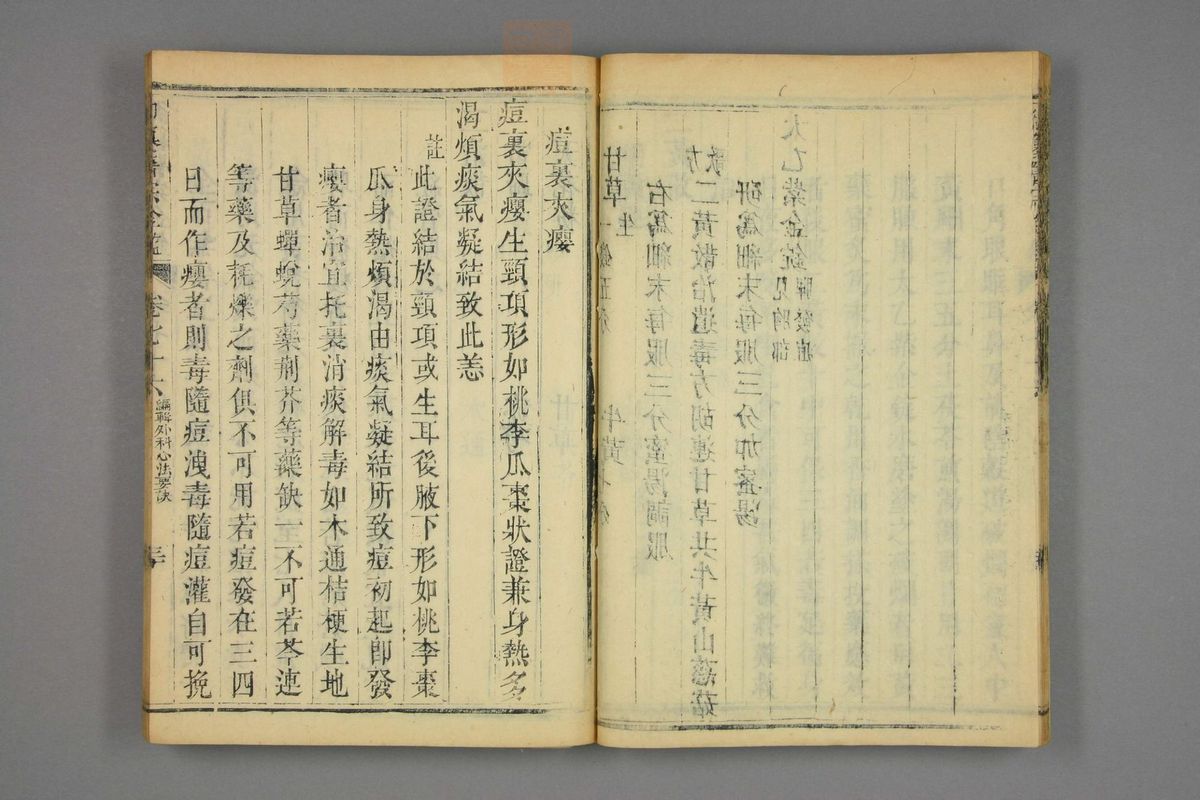 甘草生一錢五分 牛黃
右爲細末每服三分蜜湯調服
歌 二黃散治遺毒方胡連甘草共牛黃山慈菇
研爲細末每服三分加蜜湯
太乙紫金錠見胸部脾發疽
痘裏夾癭
痘裏夾癭生頸項形如桃李瓜棗狀證兼身熱多
渴煩痰氣凝結致此恙
註此證結於頸項或生耳後腋下形如桃李棗
瓜身熱煩渴由痰氣凝結所致痘初起卽發
癭者治宜托裏消痰解毒如木通桔梗生地
甘草蟬蛻芍藥荊芥等藥缺一不可若芩連
等藥及耗爍之劑俱不可用若痘發在三四
日而作癭者則毒隨痘洩毒隨痘灌自可挽
醫宗金鑑 卷七十六 編輯外科心法要訣 三